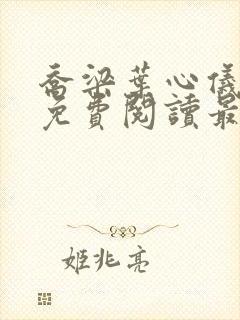 喬梁葉心儀
免費閱讀最
姬兆亮